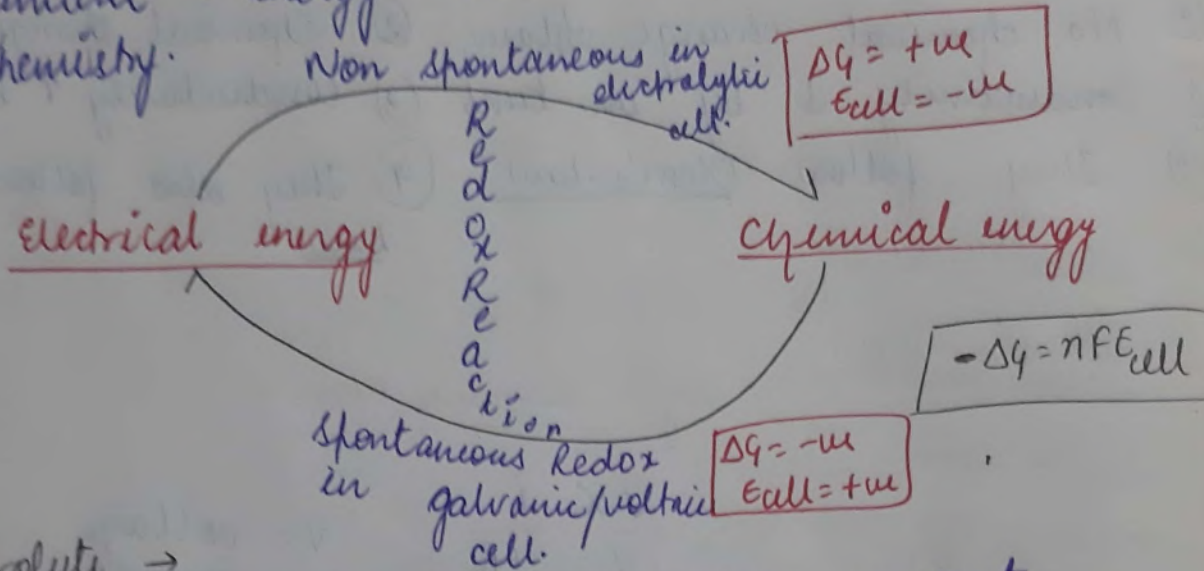 chemistry.
Non spontaneous in
electrolytic
cell.
ΔG = +ve
Ecell = -ve
Redox Reaction
Electrical energy
Chemical energy
-ΔG = nFEcell
Spontaneous Redox
in galvanic/voltaic
cell.
ΔG = -ve
Ecell = +ve
→